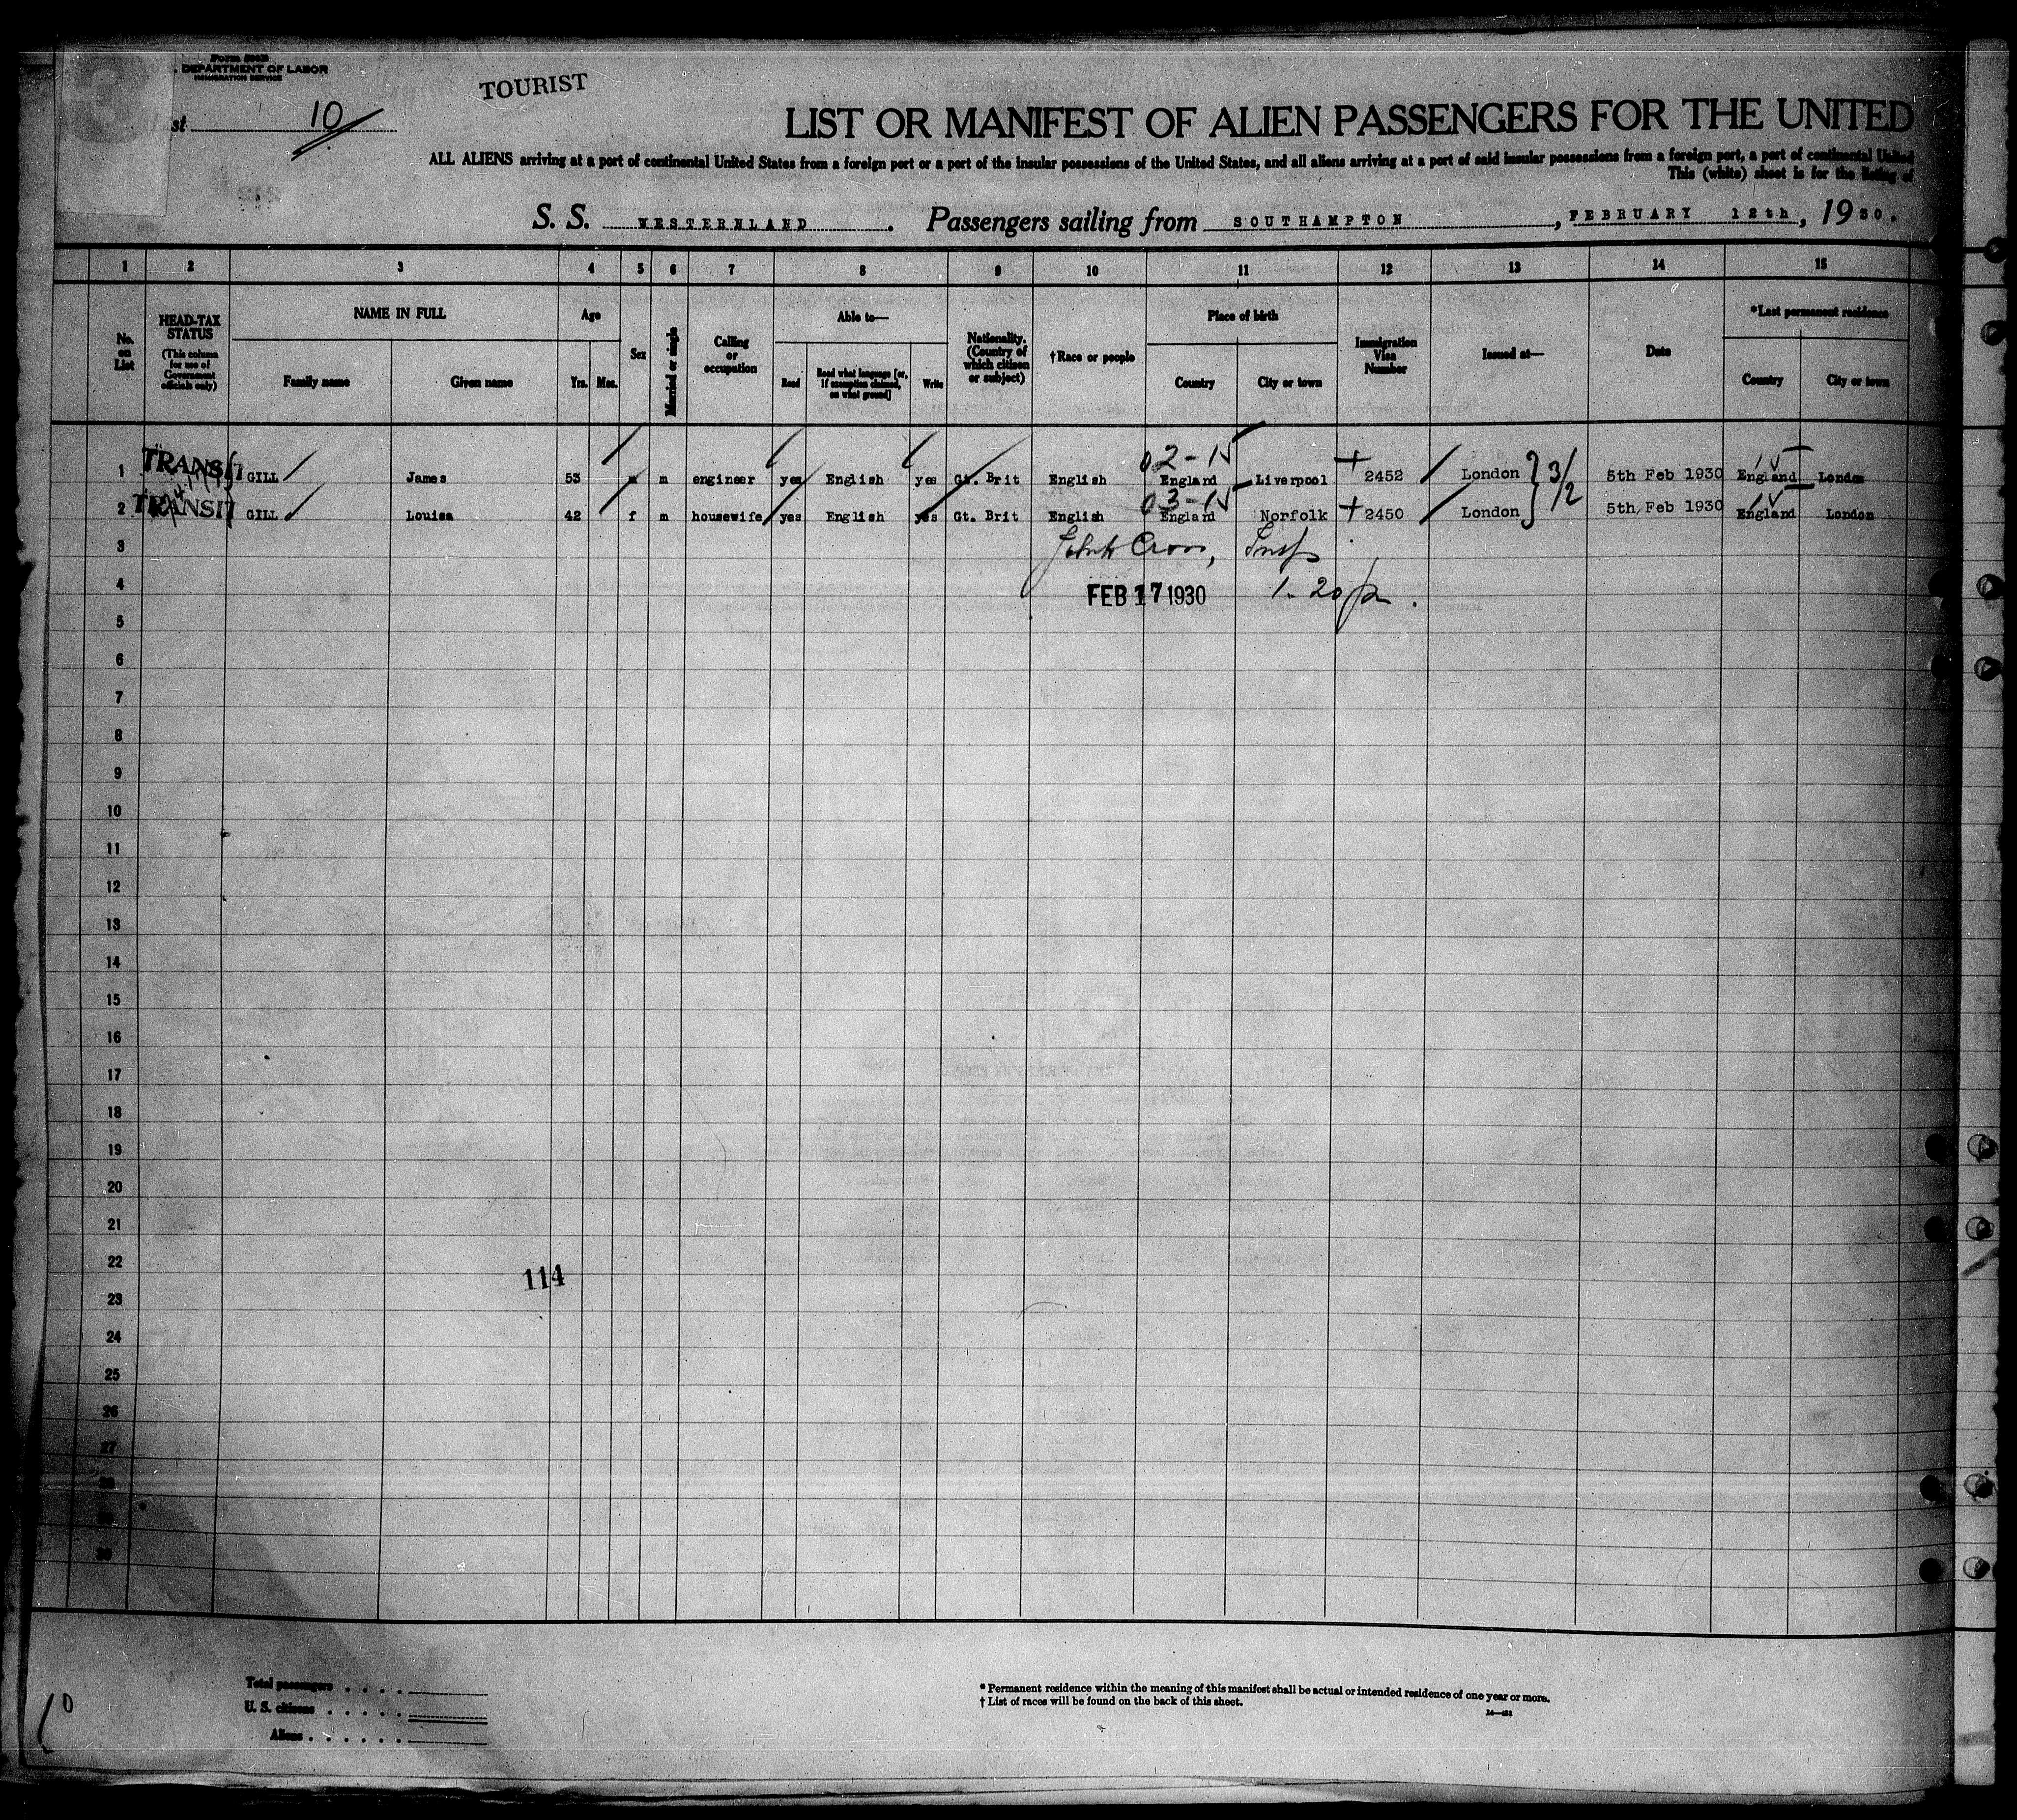 Form 500B
DEPARTMENT OF LABOR
IMMIGRATION SERVICE
TOURIST
st 10
LIST OR MANIFEST OF ALIEN PASSENGERS FOR THE UNITED
ALL ALIENS arriving at a port of continental United States from a foreign port or a port of the insular possessions of the United States, and all aliens arriving at a port of said insular possessions from a foreign port, a port of continental United
This (white) sheet is for the listing of
S. S. WESTERNLAND. Passengers sailing from SOUTHAMPTON, FEBRUARY 12th, 1930.
1 2 3 4 5 6 7 8 9 10 11 12 13 14 15
No. on List
HEAD-TAX STATUS (This column for use of Government officials only)
NAME IN FULL
Family name Given name
Age
Yrs. Mos.
Sex
Married or single
Calling or occupation
Able to—
Read Read what language [or, if exemption claimed, on what ground] Write
Nationality. (Country of which citizen or subject)
†Race or people
Place of birth
Country City or town
Immigration Visa Number
Issued at—
Date
*Last permanent residence
Country City or town
02-15
1 TRANSIT GILL James 53 m m engineer yes English yes Gt. Brit English England Liverpool 2452 London 3/2 5th Feb 1930 England London
03-15
2 TRANSIT GILL Louisa 42 f m housewife yes English yes Gt. Brit English England Norfolk 2450 London 5th Feb 1930 England London
3 Cross, Insp
4 FEB 17 1930 1-20 p
5
6
7
8
9
10
11
12
13
14
15
16
17
18
19
20
21
22
114
23
24
25
26
27
28
29
30
Total passengers
U. S. citizens
Aliens
* Permanent residence within the meaning of this manifest shall be actual or intended residence of one year or more.
† List of races will be found on the back of this sheet.
10